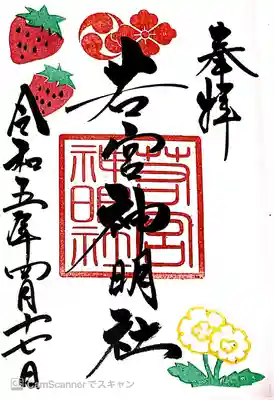 奉拝
若宮神明社
若宮
神明社
令和五年四月十七日
CamScannerでスキャン